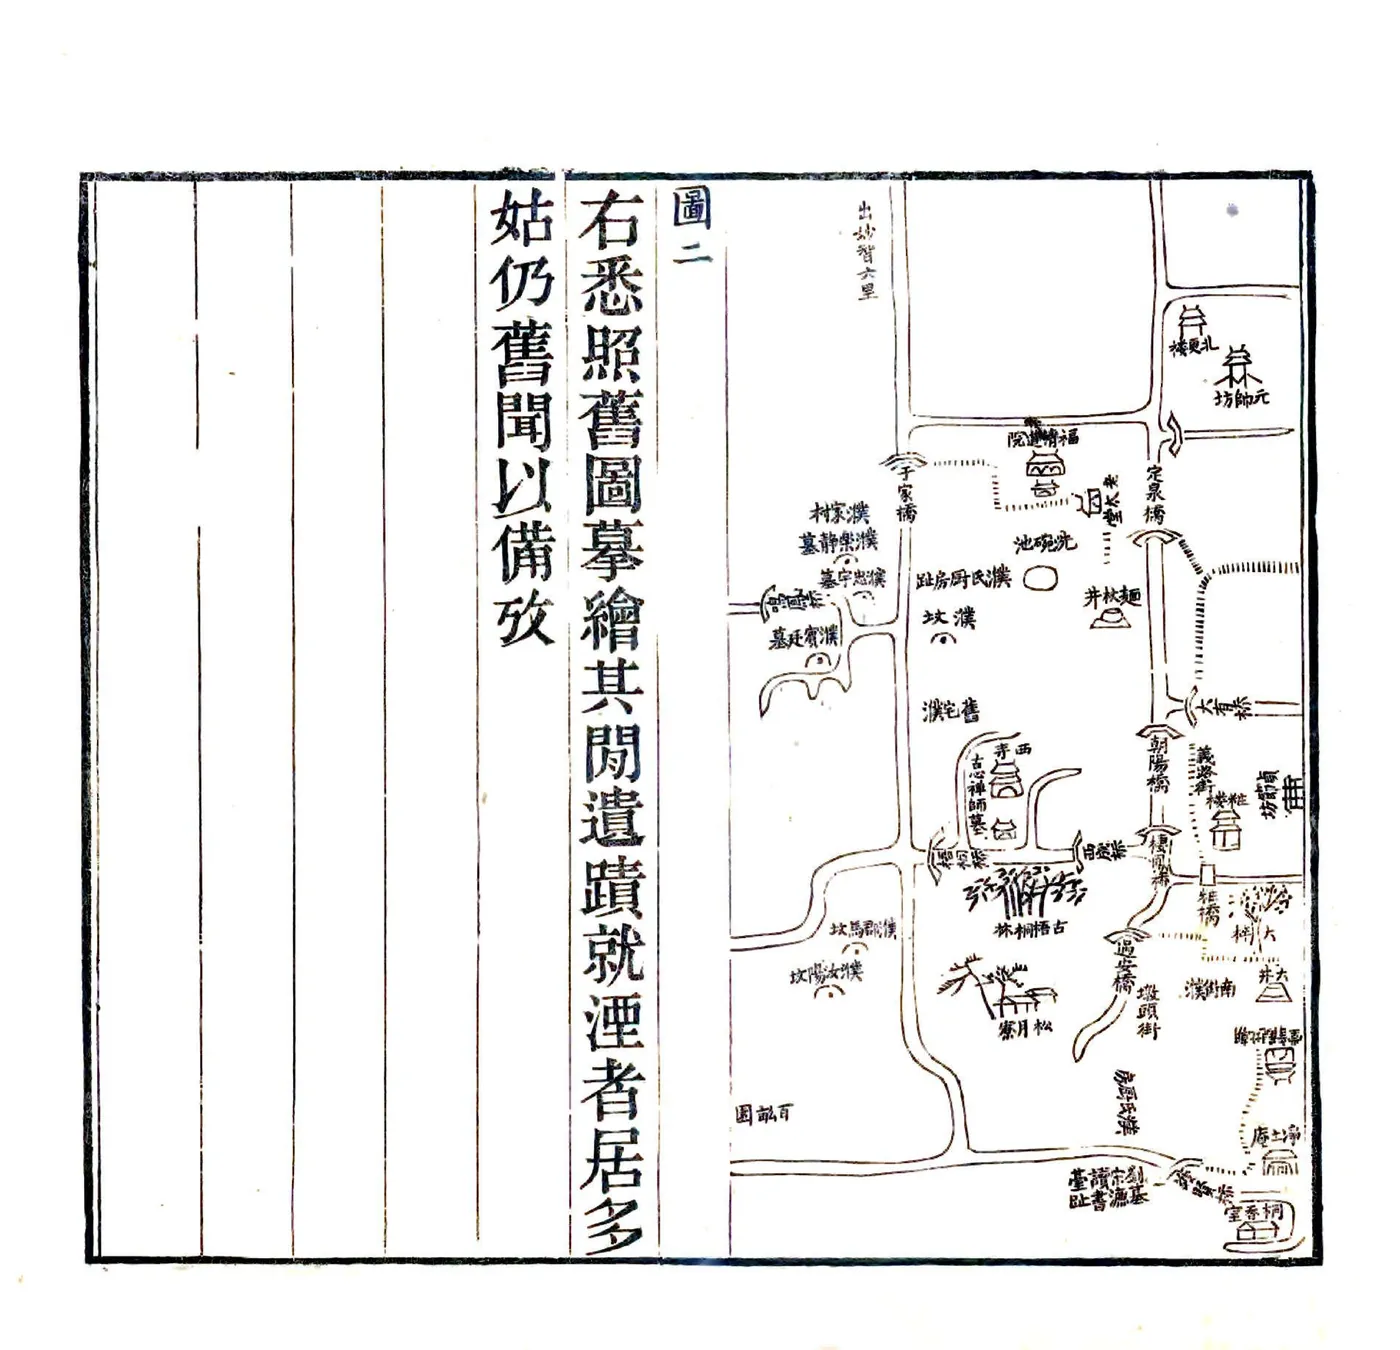 出妙智六里
北更楼
元帥坊
福靖道院
于家橋
定泉橋
老太堂
濮家村
濮樂靜墓
洗碗池
濮忠宇墓
濮氏厨房趾
麺杖井
濮賓廷墓
濮坟
大有桥
舊宅濮
朝陽橋
義路街
西寺
古心禅師墓
貞節坊
粧楼
棲鳳橋
梧桐桥
古梧桐林
濮郡馬坟
大梓
過安橋
大井
南街濮
濮汝陽坟
松月寮
墩頭街
百畝園
濮氏厨房
淨土庵
劉宗讀臺
墓漁書趾
桐香室
圖二
右悉照舊圖摹繪其閒遺蹟就湮者居多
姑仍舊聞以備攷